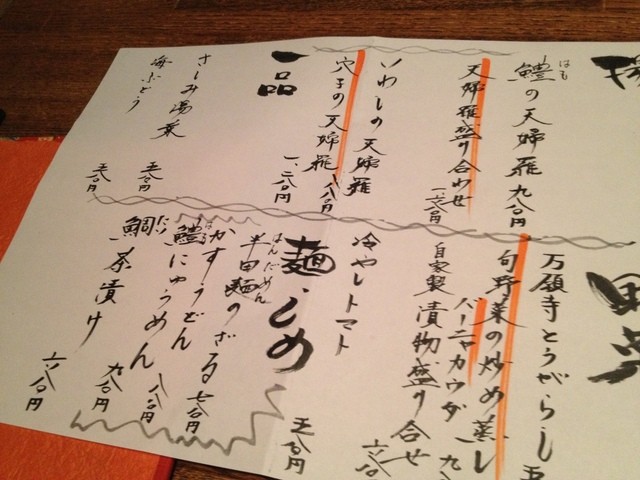 揚
鱧の天婦羅 九八〇円
はも
天婦羅盛り合わせ
いわしの天婦羅
穴子の天婦羅 八八〇円
一品
さしみ湯葉 五〇〇円
海ぶどう 五〇〇円
万願寺とうがらし 五
旬野菜の炒め蒸し
バーニャカウダ 九
自家製 漬物盛り合せ
冷やしトマト 五〇〇円
麺・〆め
半田麺のざる 七八〇円
はんだめん
かすうどん 八八〇円
鱧にゅうめん 九八〇円
鯛茶漬け 六八〇円
たい